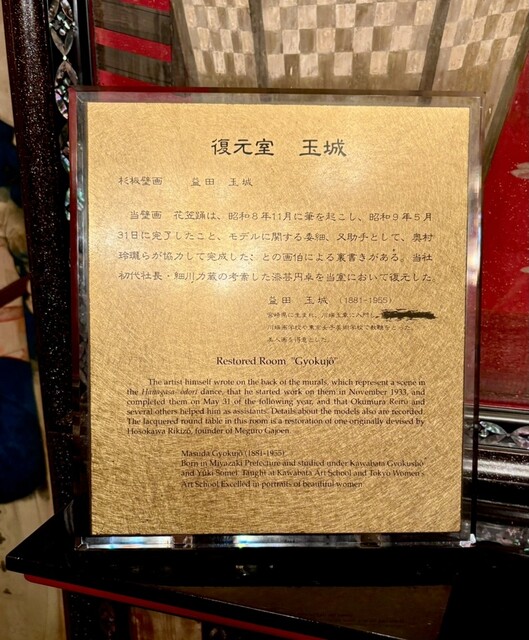 復元室　玉城
杉板壁画　　益田　玉城
当壁画　花笠踊は、昭和8年11月に筆を起こし、昭和9年5月
31日に完了したこと、モデルに関する委細、又助手として、奥村
玲瓏らが協力して完成した、との画伯による裏書きがある。当社
初代社長・細川力蔵の考案した漆芸円卓を当室において復元した。
益田　玉城　(1881-1955)
宮崎県に生まれ、川端玉章に入門し、
川端画学校や東京女子美術学校で教鞭をとった。
美人画を得意とした。
Restored Room "Gyokujō"
The artist himself wrote on the back of the murals, which represent a scene in
the Hanagasa-odori dance, that he started work on them in November 1933, and
completed them on May 31 of the following year, and that Okumura Reirō and
several others helped him as assistants. Details about the models also are recorded.
The lacquered round table in this room is a restoration of one originally devised by
Hosokawa Rikizō, founder of Meguro Gajoen.
Masuda Gyokujō (1881-1955)
Born in Miyazaki Prefecture and studied under Kawabata Gyokushō
and Yūki Somei. Taught at Kawabata Art School and Tokyo Women's
Art School Excelled in portraits of beautiful women